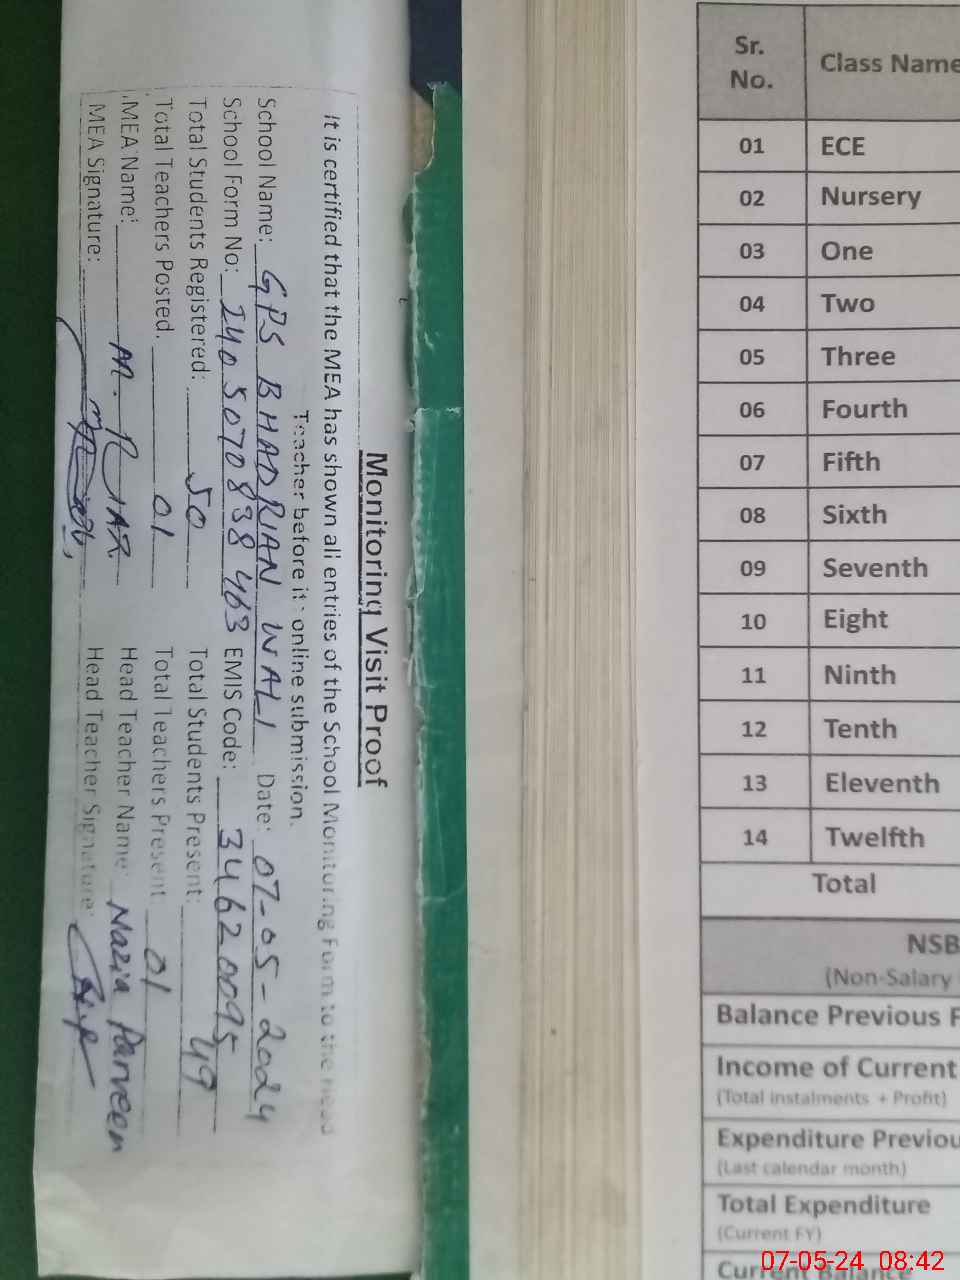 Monitoring Visit Proof
It is certified that the MEA has shown all entries of the School Monitoring Form to the Head
Teacher before its online submission.
School Name: GPS BHADRIAN WALI Date: 07-05-2024
School Form No: 2405070838463 EMIS Code: 34620095
Total Students Registered: 50 Total Students Present: 49
Total Teachers Posted. 01 Total Teachers Present 01
MEA Name: M. Head Teacher Name: Nazia Parveen
MEA Signature: Head Teacher Signature:
Sr. No. Class Name
01 ECE
02 Nursery
03 One
04 Two
05 Three
06 Fourth
07 Fifth
08 Sixth
09 Seventh
10 Eight
11 Ninth
12 Tenth
13 Eleventh
14 Twelfth
Total
NSB
(Non-Salary
Balance Previous F
Income of Current
(Total instalments + Profit)
Expenditure Previou
(Last calendar month)
Total Expenditure
(Current FY)
Current Balance
07-05-24 08:42